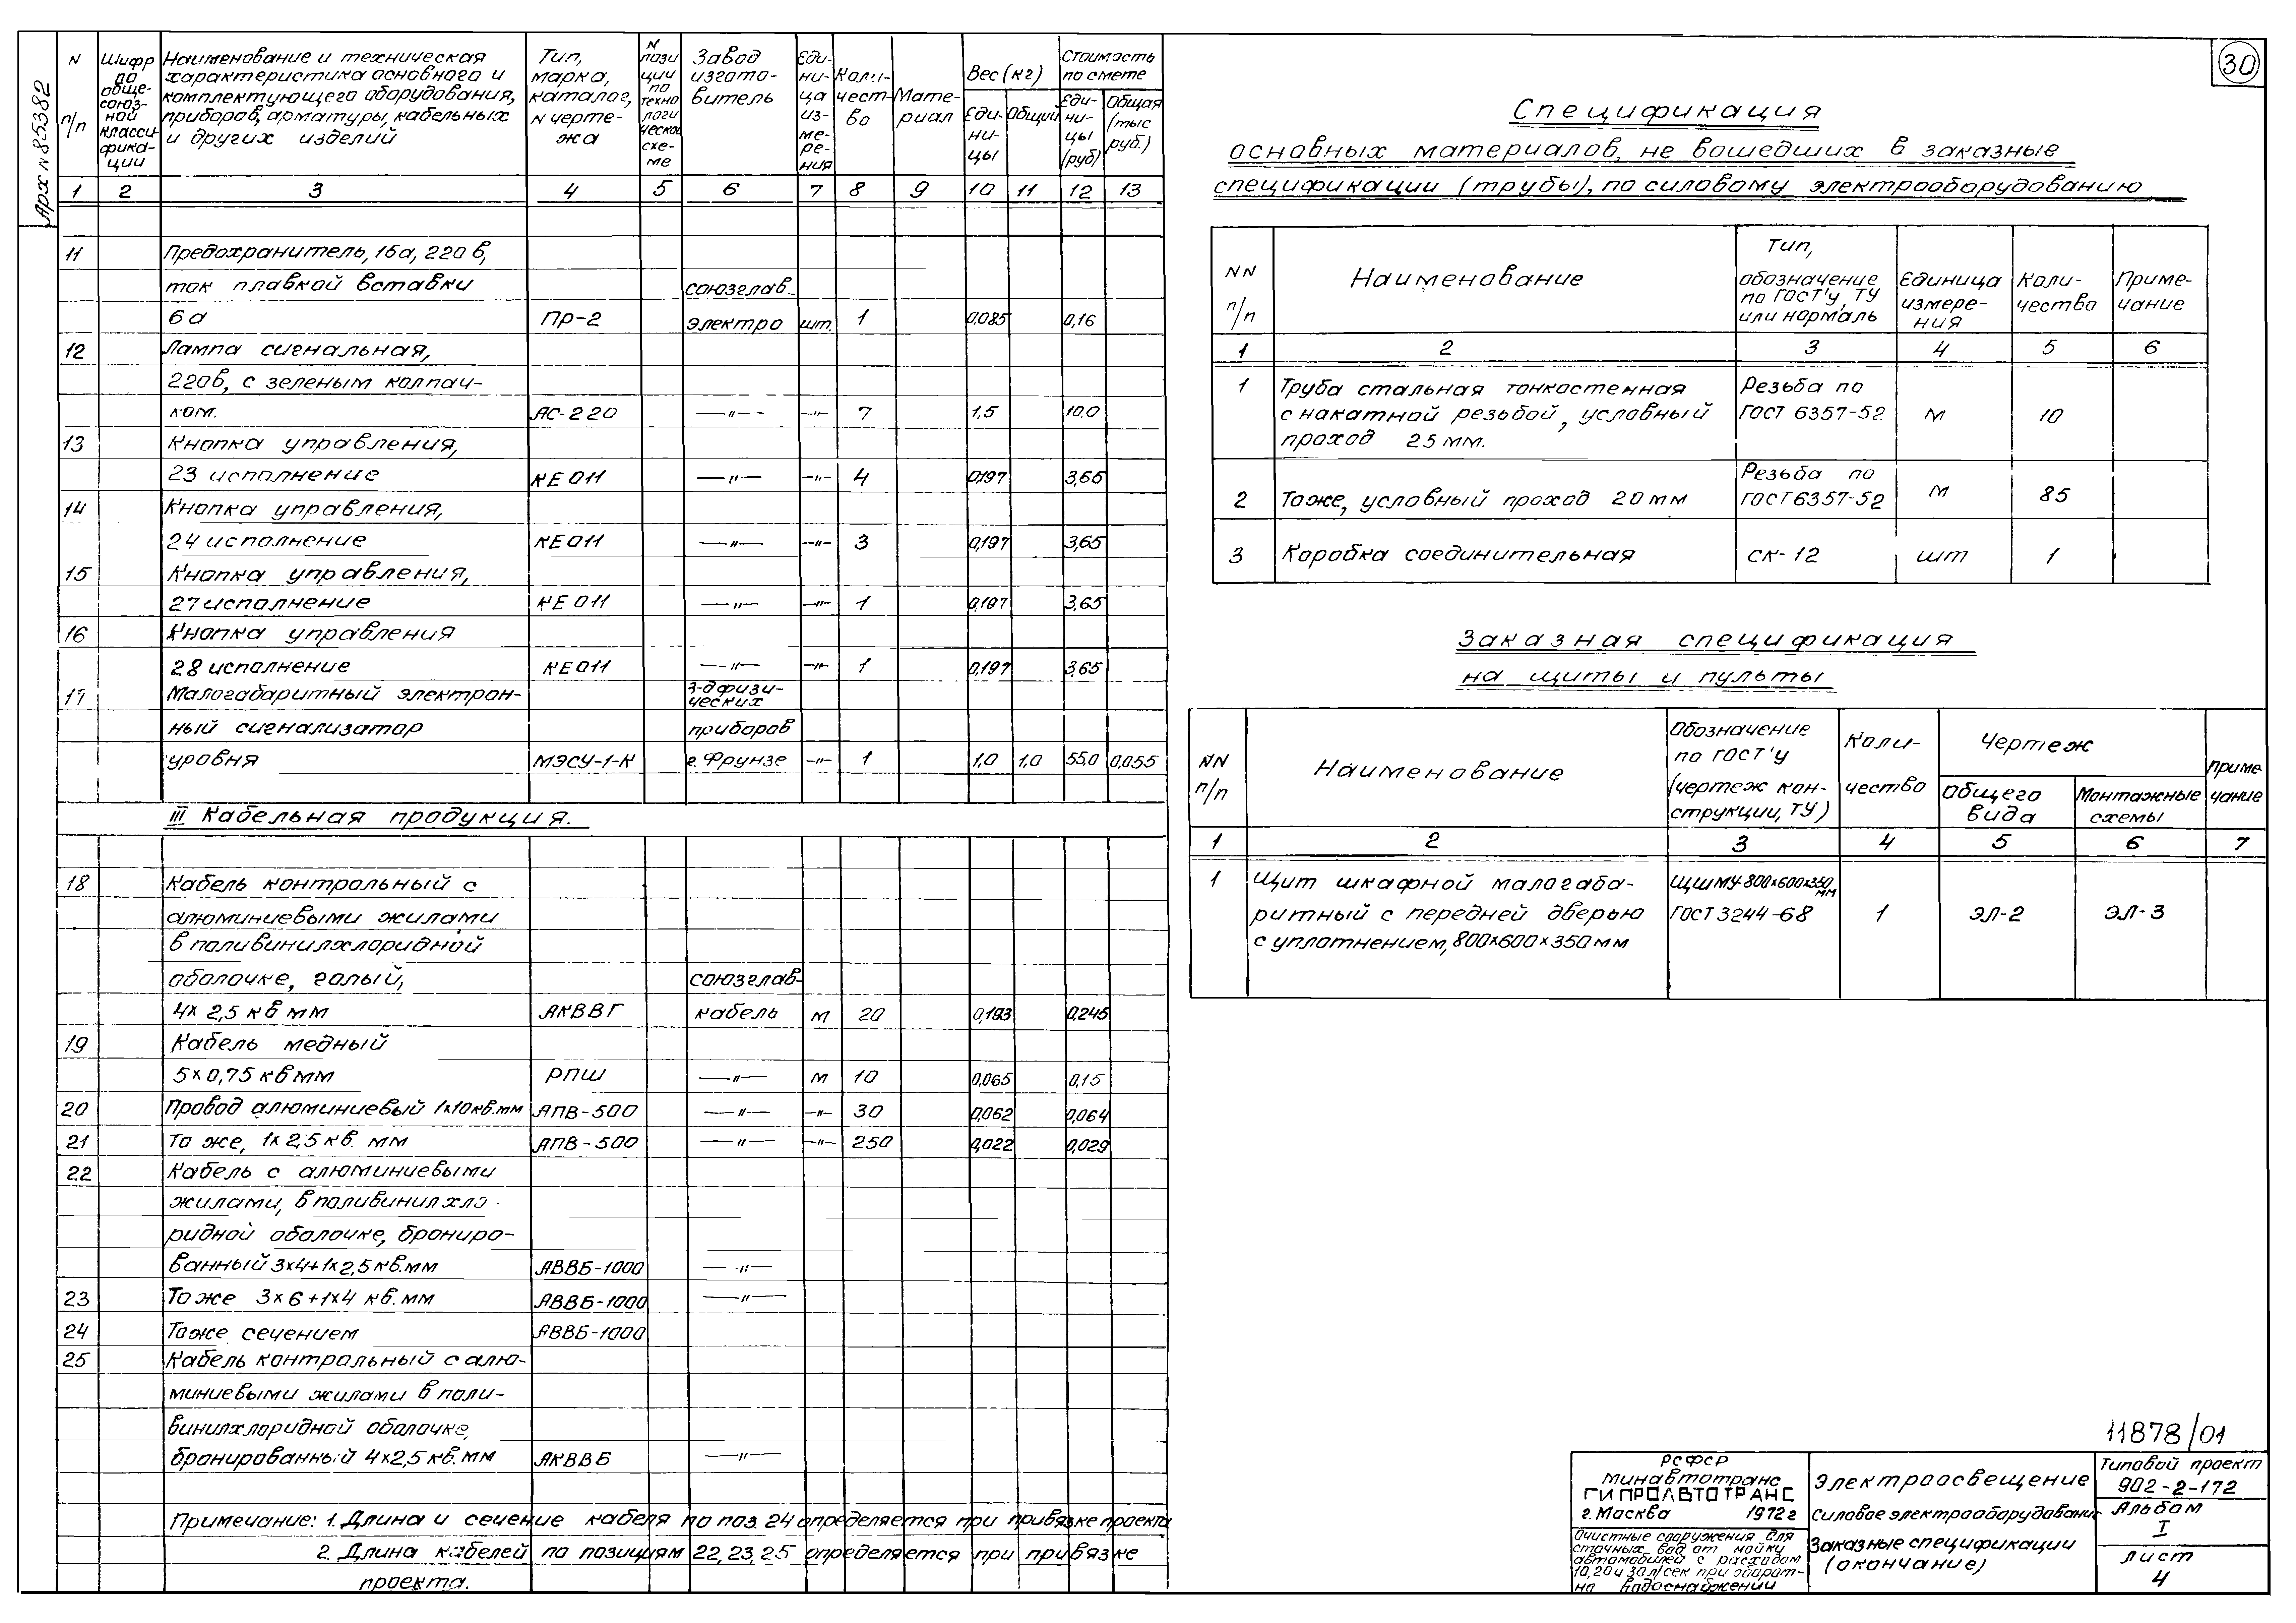 Арх N 85382
N п/п
Шифр по обще-союз-ной класси-фика-ции
Наименование и техническая
характеристика основного и
комплектующего оборудования,
приборов, арматуры, кабельных
и других изделий
Тип, марка, каталог, N черте-жа
N пози ции по техно логи ческой схе-ме
Завод изгото-витель
Еди-ни-ца из-ме-ре-ния
Коли-чест-во
Мате-риал
Вес (кг)
Еди-ни-цы
Общий
Стоимость по смете
Еди-ни-цы (руб)
Общая (тыс руб.)
1 2 3 4 5 6 7 8 9 10 11 12 13
11 Предохранитель, 16а, 220 в,
ток плавкой вставки союзглав-
6 а ПР-2 электро шт. 1 0,085 0,16
12 Лампа сигнальная,
220в, с зеленым колпач-
ком. АС-220 —"— —"— 7 1,5 10,0
13 Кнопка управления,
23 исполнение КЕ 011 —"— —"— 4 0,197 3,65
14 Кнопка управления,
24 исполнение КЕ 011 —"— —"— 3 0,197 3,65
15 Кнопка управления,
27 исполнение КЕ 011 —"— —"— 1 0,197 3,65
16 Кнопка управления
28 исполнение КЕ 011 —"— —"— 1 0,197 3,65
17 Малогабаритный электрон- з-д физи-ческих
ный сигнализатор приборов
уровня МЭСУ-1-К г. Фрунзе —"— 1 1,0 1,0 55,0 0,055
III Кабельная продукция.
18 Кабель контрольный с
алюминиевыми жилами
в поливинилхлоридной
оболочке, голый, союзглав-
4х 2,5 кв мм АКВВГ кабель м 20 0,193 0,245
19 Кабель медный
5×0,75 кв мм РПШ —"— м 10 0,065 0,15
20 Провод алюминиевый 1х10 кв.мм АПВ-500 —"— —"— 30 0,062 0,064
21 То же, 1х 2,5 кв. мм АПВ-500 —"— —"— 250 0,022 0,029
22 Кабель с алюминиевыми
жилами, в поливинилхло-
ридной оболочке, брониро-
ванный 3×4+1×2,5 кв.мм АВВБ-1000 —"—
23 То же 3×6+1×4 кв. мм АВВБ-1000 —"—
24 То же сечением АВВБ-1000
25 Кабель контрольный с алю-
миниевыми жилами в поли-
винилхлоридной оболочке,
бронированный 4×2,5 кв. мм АКВВБ —"—
Примечание: 1. Длина и сечение кабеля по поз. 24 определяется при привязке проекта
2. Длина кабелей по позициям 22, 23, 25 определяется при привязке
проекта.
30
Спецификация
основных материалов, не вошедших в заказные
спецификации (трубы), по силовому электрооборудованию
NN п/п
Наименование
Тип, обозначение по ГОСТ'у, ТУ или нормаль
Единица измере-ния
Коли-чество
Приме-чание
1 2 3 4 5 6
1 Труба стальная тонкостенная Резьба по
с накатной резьбой, условный ГОСТ 6357-52 м 10
проход 25 мм.
Резьба по
2 То же, условный проход 20 мм ГОСТ 6357-52 м 85
3 Коробка соединительная СК-12 шт 1
Заказная спецификация
на щиты и пульты
NN п/п
Наименование
Обозначение по ГОСТ'у (чертеж кон-струкции, ТУ)
Коли-чество
Чертеж
Общего вида
Монтажные схемы
Приме чание
1 2 3 4 5 6 7
1 Щит шкафной малогаба- ЩШМУ-800х600х350 мм
ритный с передней дверью ГОСТ 3244-68 1 ЭЛ-2 ЭЛ-3
с уплотнением, 800×600×350 мм
11878/01
РСФСР
Минавтотранс
ГИПРОАВТОТРАНС
г. Москва 1972 г
Очистные сооружения для
сточных вод от мойки
автомобилей с расходом
10, 20 и 30 л/сек при оборот-
но водоснабжении
Электроосвещение
Силовое электрооборудование
Заказные спецификации
(окончание)
Типовой проект
902-2-172
Альбом
I
Лист
4